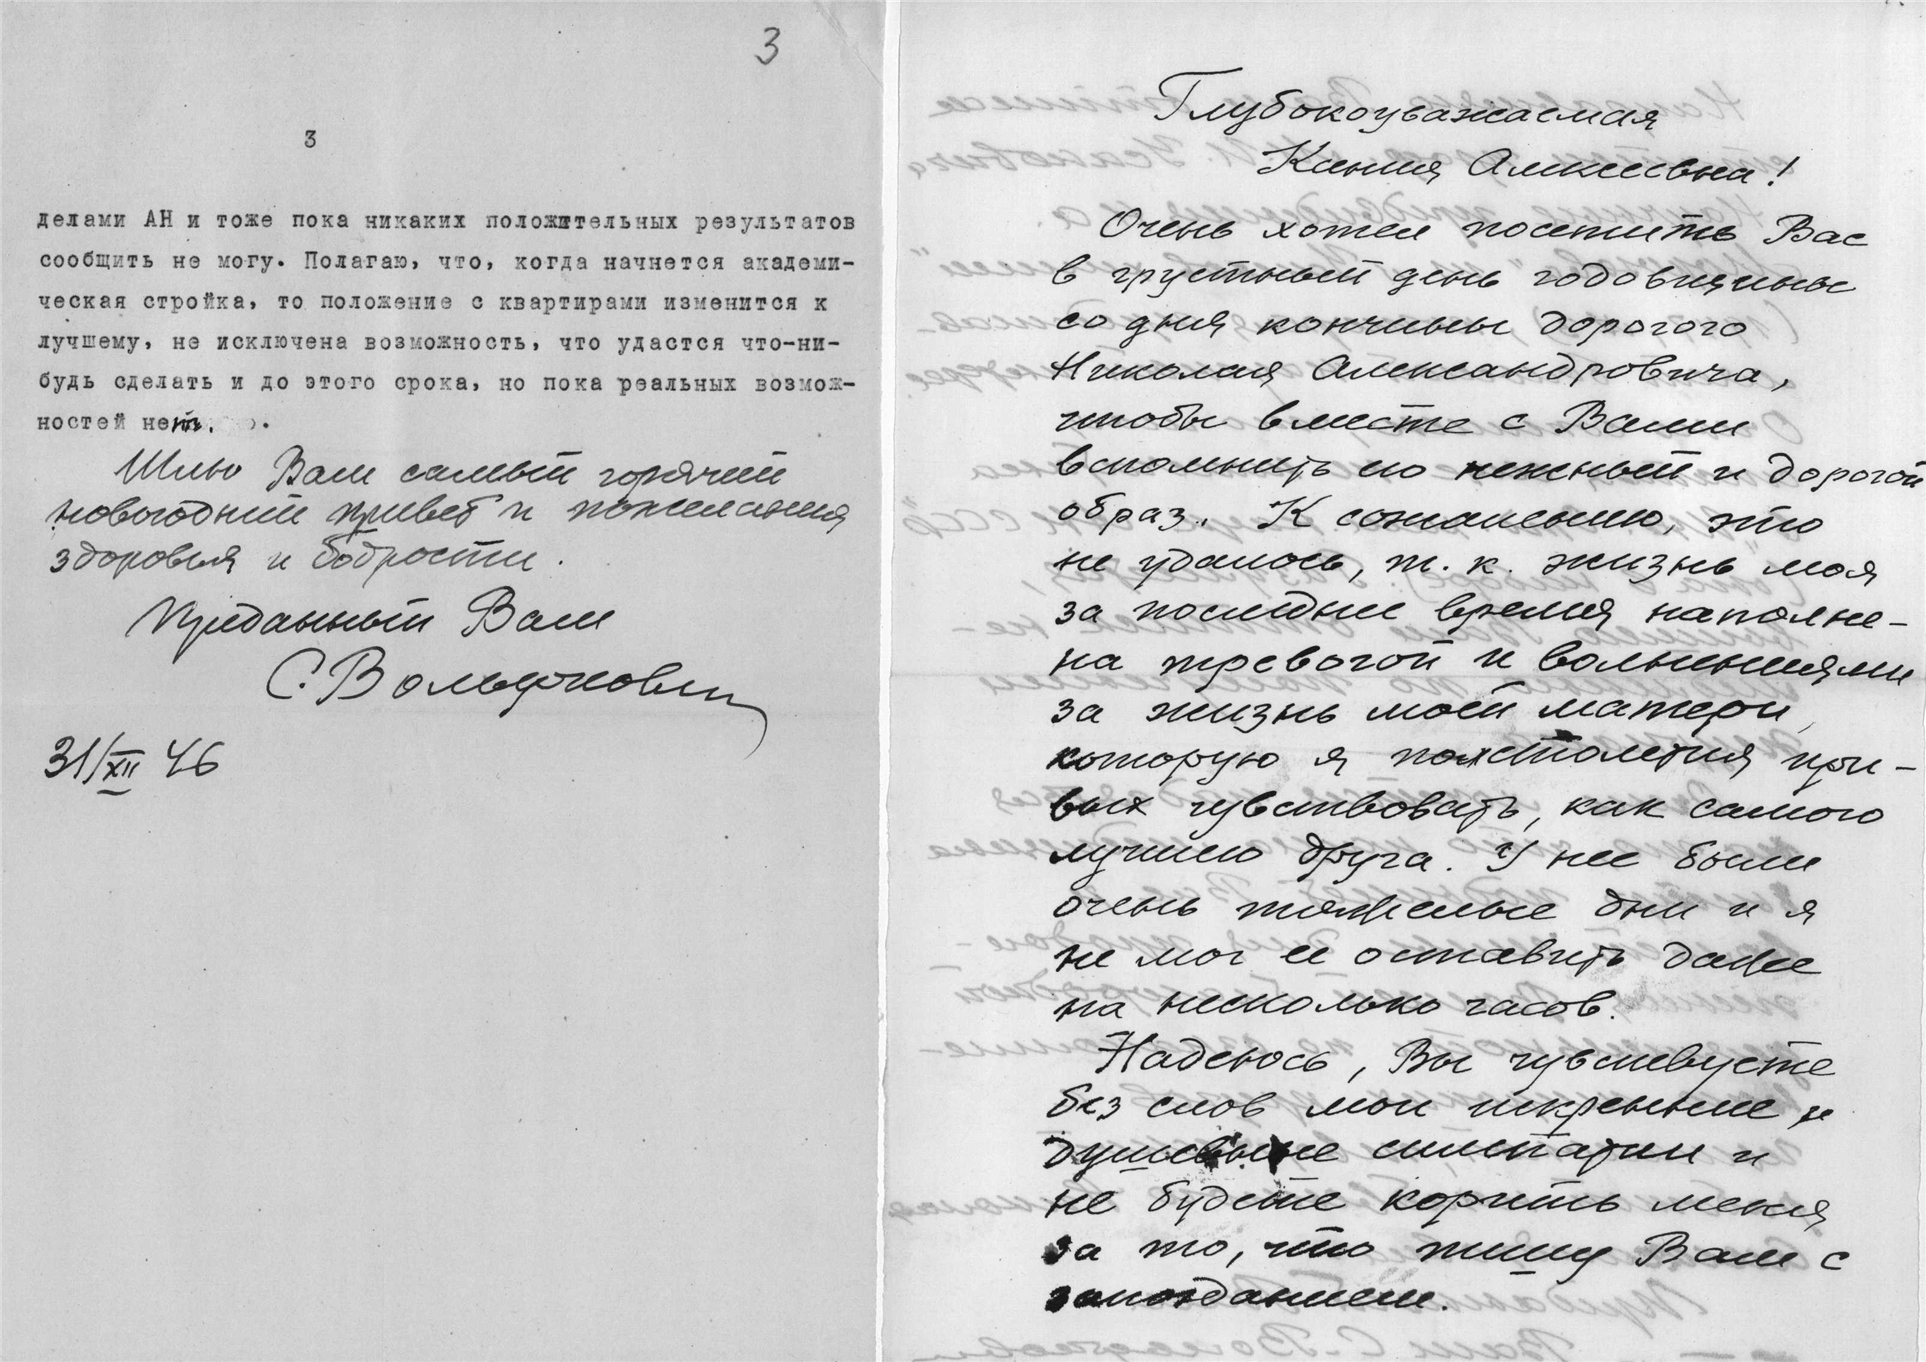 3
3
делами АН и тоже пока никаких положительных результатов
сообщить не могу. Полагаю, что, когда начнется академи-
ческая стройка, то положение с квартирами изменится к
лучшему, не исключена возможность, что удастся что-ни-
будь сделать и до этого срока, но пока реальных возмож-
ностей нет.
Шлю Вам самый горячий
новогодний привет и пожелания
здоровья и бодрости.
Преданный Вам
С. Вольфкович
31/XII 46
Глубокоуважаемая
Ксения Алексеевна!
Очень хотел посетить Вас
в грустный день годовщины
со дня кончины дорогого
Николая Александровича,
чтобы вместе с Вами
вспомнить его нежный и дорогой
образ. К сожалению, это
не удалось, т. к. жизнь моя
за последнее время наполне-
на тревогой и волнениями
за жизнь моей матери,
которую я полстолетия при-
вык чувствовать, как самого
лучшего друга. У нее были
очень тяжелые дни и я
не мог ее оставить даже
на несколько часов.
Надеюсь, Вы чувствуете
без слов мои искренние и
душевные симпатии и
не будете корить меня
за то, что пишу Вам с
запозданием.